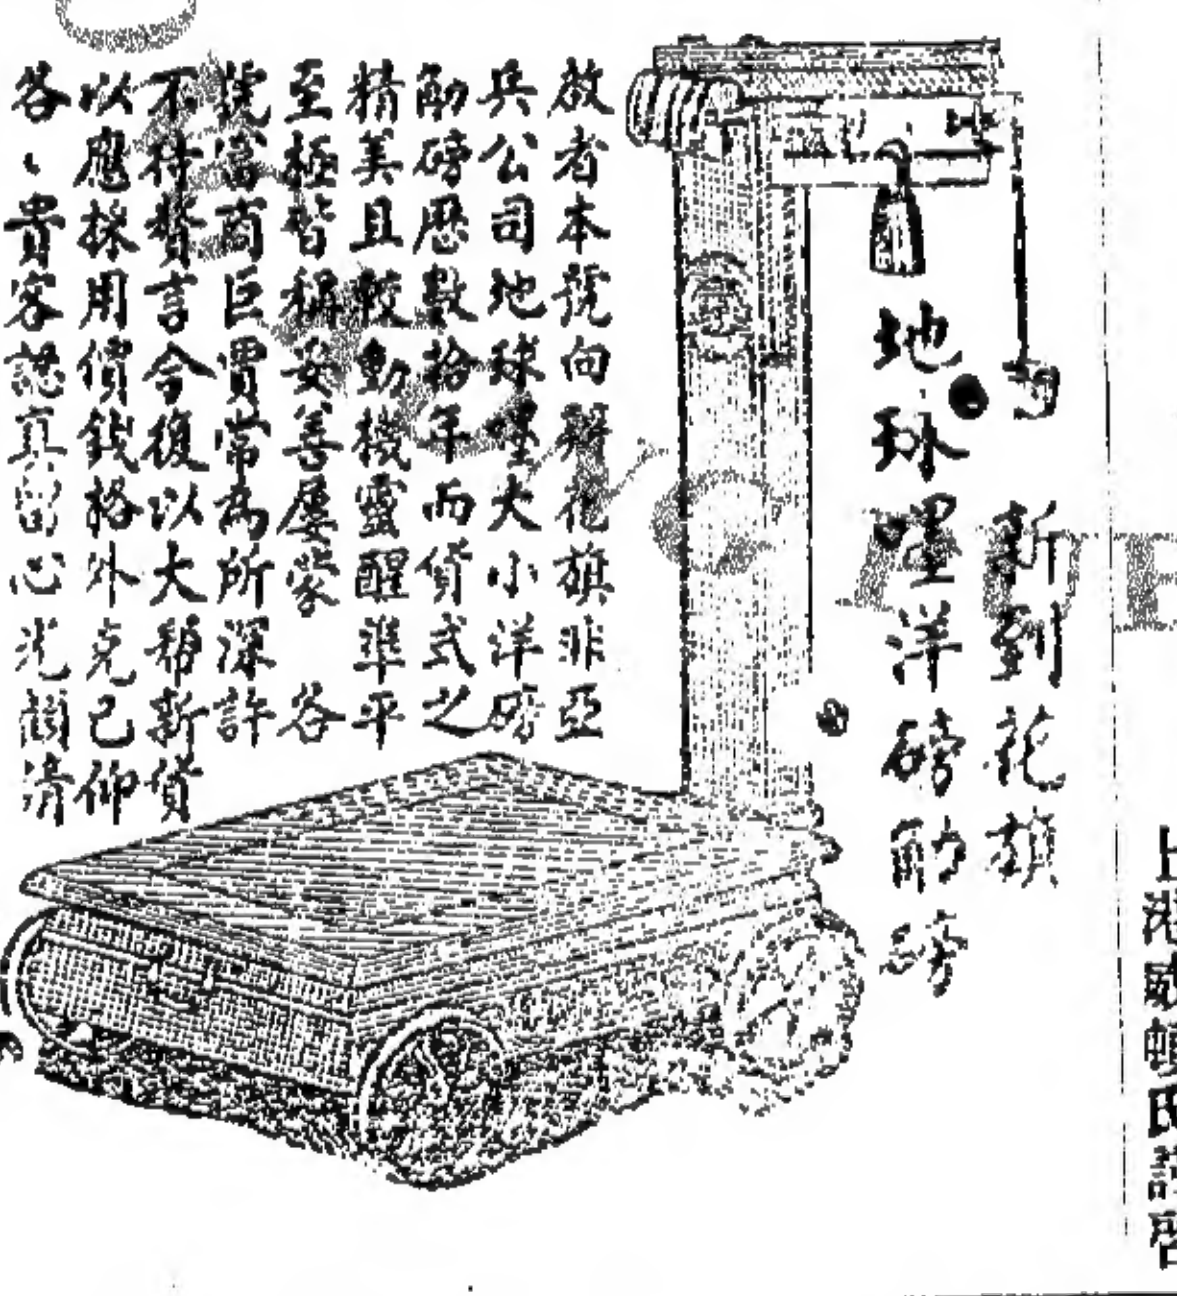 新到花旗
地球嘜洋磅觔磅
啟者本號向辦花旗非亞
兵公司地球嘜大小洋磅
觔磅歷數拾年而貨式之
精美且較動機靈醒準平
至極皆稱妥善屢蒙 各
號富商巨賈常為所深許
不待贅言今復以大幫新貨
以應採用價錢格外克己仰
各、貴客認真留心光顧
上港威頓氏謹啓